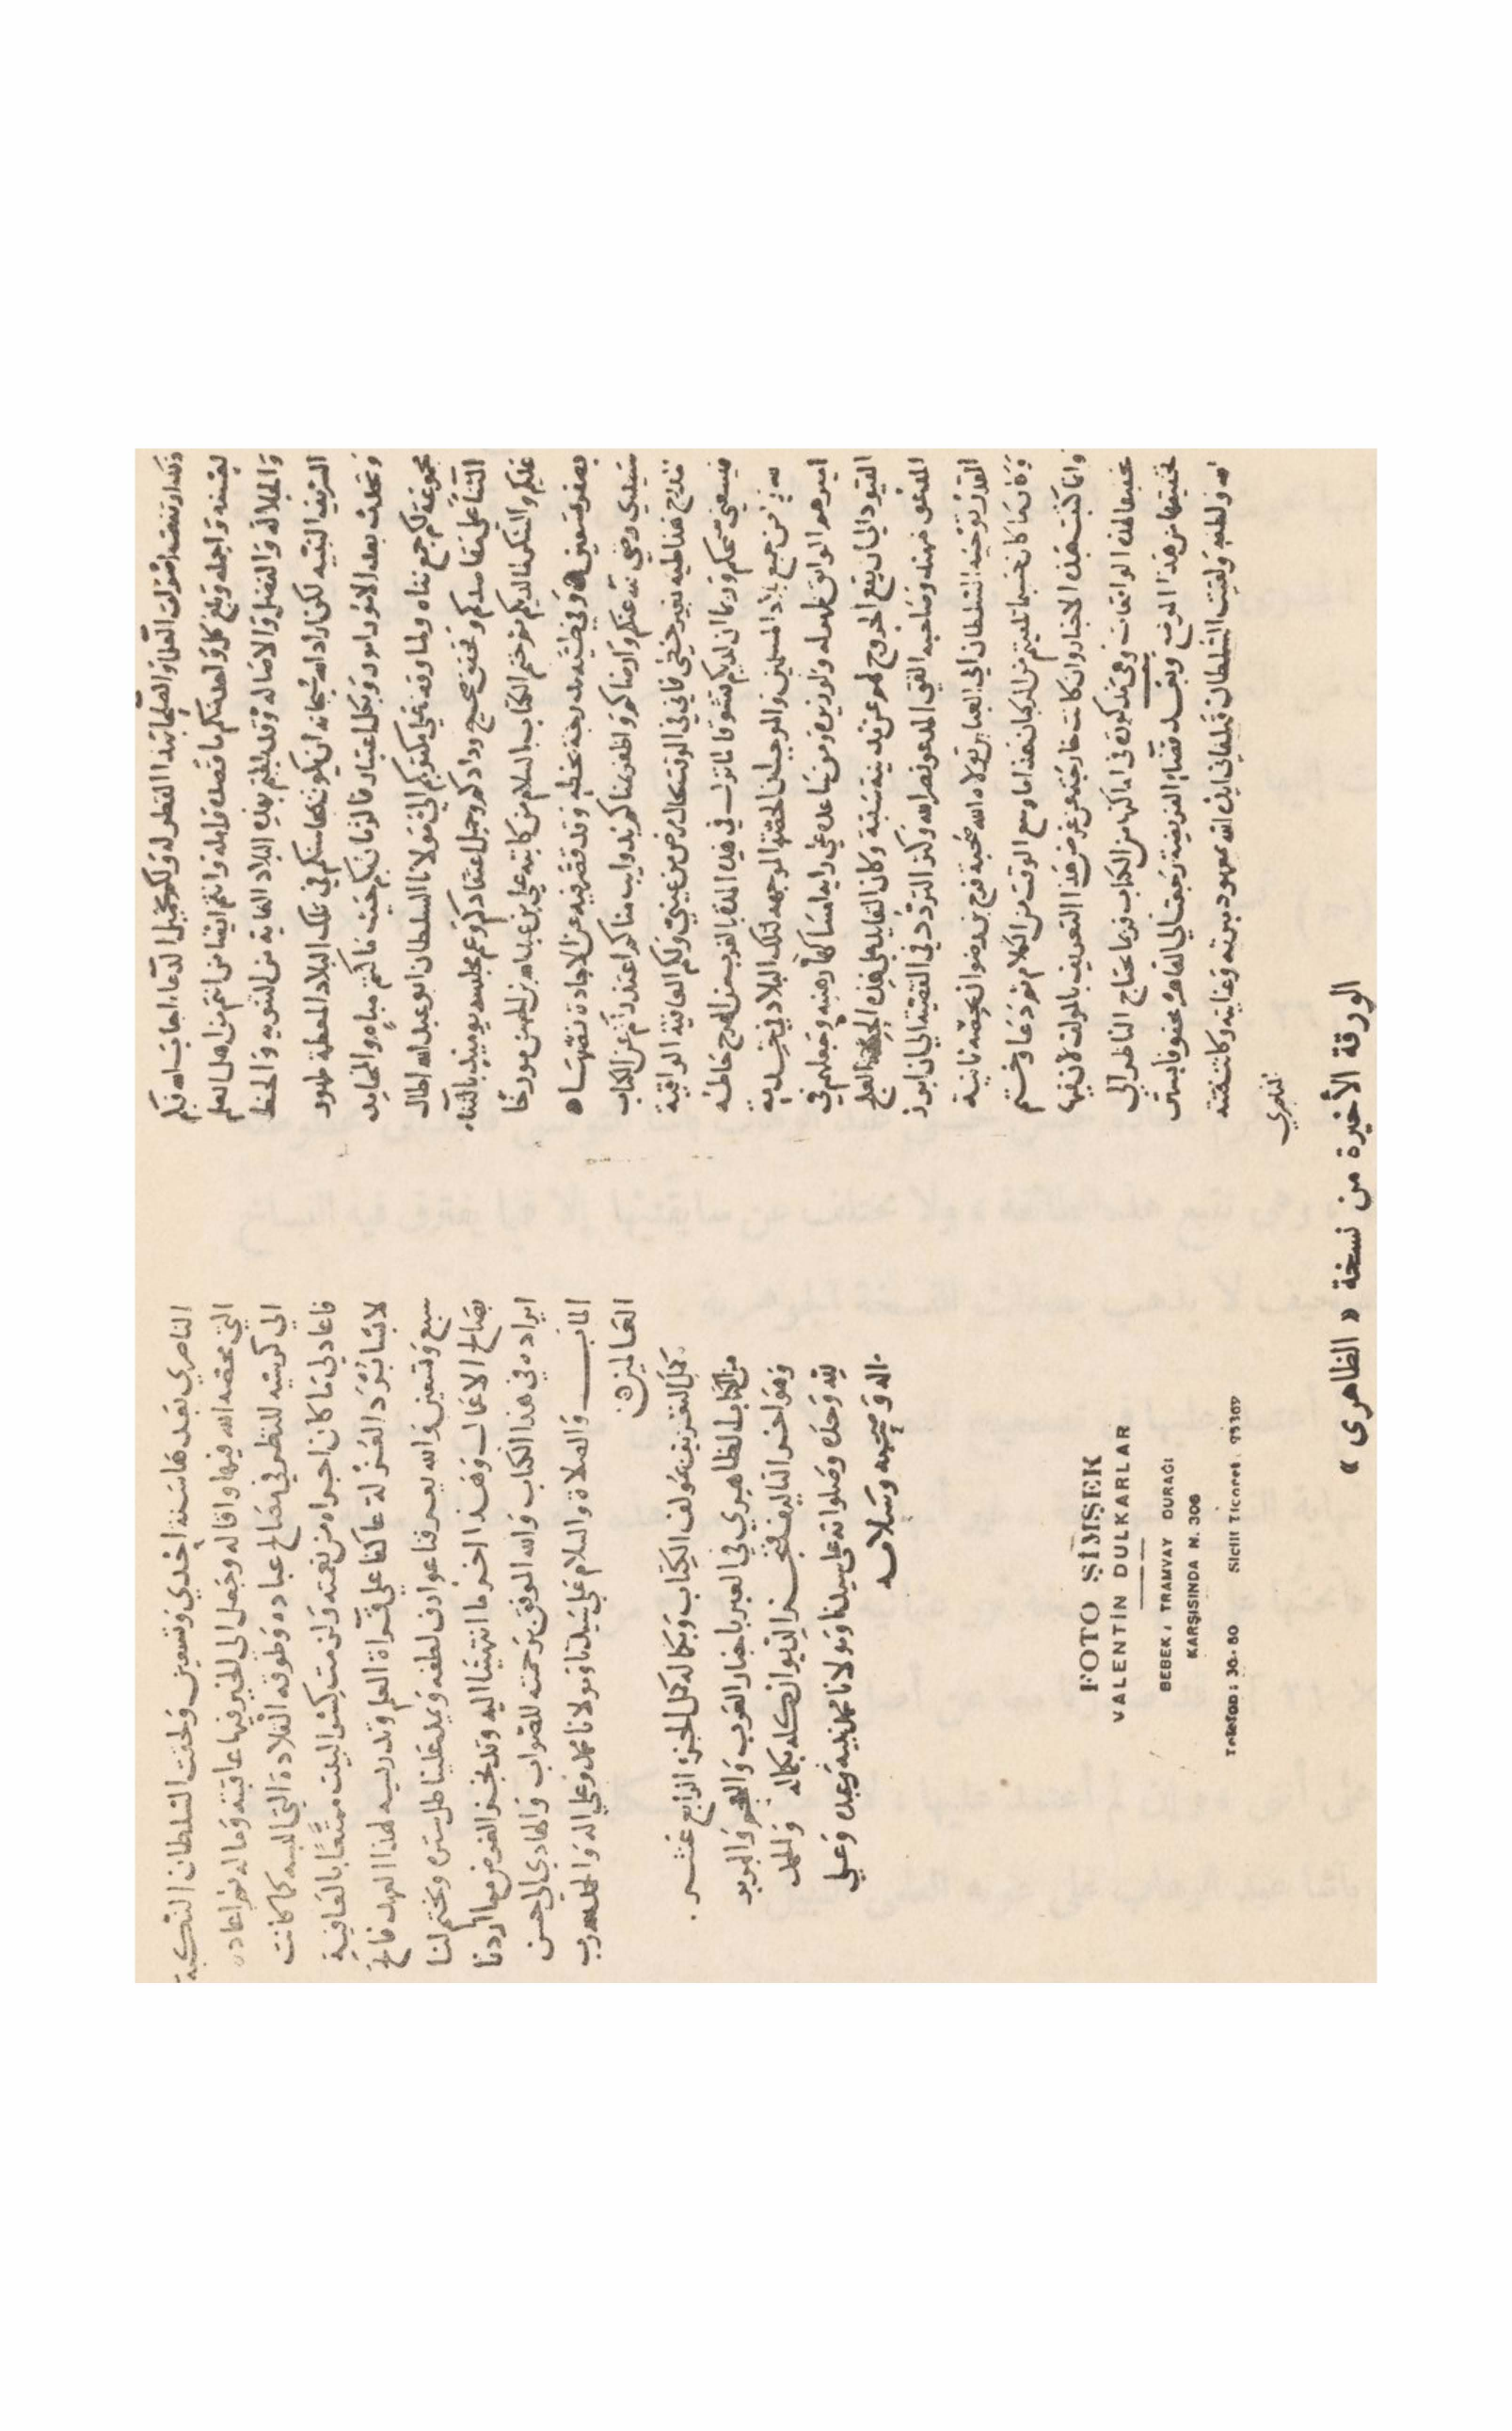 العلماء هذا القطر الدعا اجاب الله فيكم
لفضله وانتم ايضا من انتم من اهل العلم
والجلالة والفضل والاصالة وقد بلغتم بهذه البلاد الغاية من التنويه والحظ
الشريف النبيه لكن اراد الله سبحانه ان يكون لمحاسنكم في تلك البلاد المعظمة ظهور
وتحدث بعد الامور امور وبكل اعتبار فالزمان بكم حيث ما كنتم مباه والمحامد
مجموعة لكم جمع تناه ولما وقف على مكتوبكم الي مولانا السلطان ابو عبد الله اطال
الثنا على مقاصدكم وتحقق صحيح ودادكم وجميل اعتقادكم وعمر مجلسه يوميذ بالثناء
عليكم والشكر لما لديكم ثم ختم الكتاب بالسلام من كاتبه علي بن عبد الله بن الحسن مورخا
بصفر تسعين وفي طيه مدرجة بخطه وقد قصر فيه عن الاجادة نصها
سيدي رضي الله عنكم وارضاكم واظفر يمناكم بذوايب مناكم اعتذر لكم عن الكتاب
المدرج هذا طيه بغير خطي فاني في الوقت بحال مرض من عيني ولكم العافية الواقية
فيسعني سمحكم وربما ان لديكم تشوفا لما نزل في هذه المدة بالمغرب من الهرج حاطه
الله من جميع بلاد المسلمين والموجب ان الحصة الموجهة لتلك البلاد في خدمة
اميرهم الواثق ظهر له ولوزيره ومن ساعده على رايه امساكها رهينة وجعلهم في
القيود الي ان يقع الخروج لهم عن مدينة سبتة وكان القايد على هذه الحصة العلج
المدعو مهند وصاحبه الفتي المدعو نصر الله وكثر التردد في القضية الي ان ابرز
القدر توجيه السلطان ابي العباس تولاه الله صحبة فرج بن رضوان بحصة ثانية
وكان ما كان حسبما تلقيتم من الركبان هذا ما وسع الوقت من الكلام ثم دعا وختم
وانما كتبت هذه الاخبار وان كانت خارجة عن غرض هذا التعريف بالمولف لان فيها
تحقيقا لهذه الواقعات وهي مذكورة في اماكنها من الكتاب فربما يحتاج الناظر الي
تحقيقها من هذا الموضع وبعد قضا الفريضة رجعت الي القاهرة محفوفا بستر
الله ولطفه ولقيت السلطان فتلقاني ايده الله بمعهود مبرته وعنايته وكانت فتنة
الناصري
الناصري بعدها سنة احدي وتسعين ولحقت السلطان النكبة
التي محصه الله فيها واقاله وجعل الي الخير فيها عاقبته وماله ثم اعاده
الي كرسيه للنظر في مصالح عباده وطوقه القلادة التي البسه كما كانت
فاعاد لي ما كان اجراه من نعمته ولزمت كسر البيت ممتعا بالعافية
لابسا برد العزلة عاكفا علي قراة العلم وتدريسه لهذا العهد فاتح
سبع وتسعين والله يعرفنا عوارف لطفه ويمد علينا ظل ستره ويختم لنا
بصالح الاعمال وهذا اخر ما انتهيت اليه وقد نجز الغرض مما اردنا
ايراده في هذا الكتاب والله الموفق برحمته للصواب والهادي الي حسن
الماب والصلاة والسلام علي سيدنا ومولانا محمد وعلي اله والحمد لله رب
العالمين
كمل التعريف بمولف الكتاب وبكماله كمل الجزء الرابع عشر
من الكتاب الظاهري في العبر باخبار العرب والعجم والبربر
وهو اخر التاليف فنجز الديوان كله بكماله والحمد
لله وحده وصلواته علي سيدنا ومولانا محمد نبيه وعبده وعلي
اله وصحبه وسلامه
FOTO ŞİMŞEK
VALENTİN DULKARLAR
BEBEK: TRAMVAY DURAĞI
KARŞISINDA N. 306
Telefon: 36.80 Sicill Ticaret.
الورقة الأخيرة من نسخة « الظاهرى »